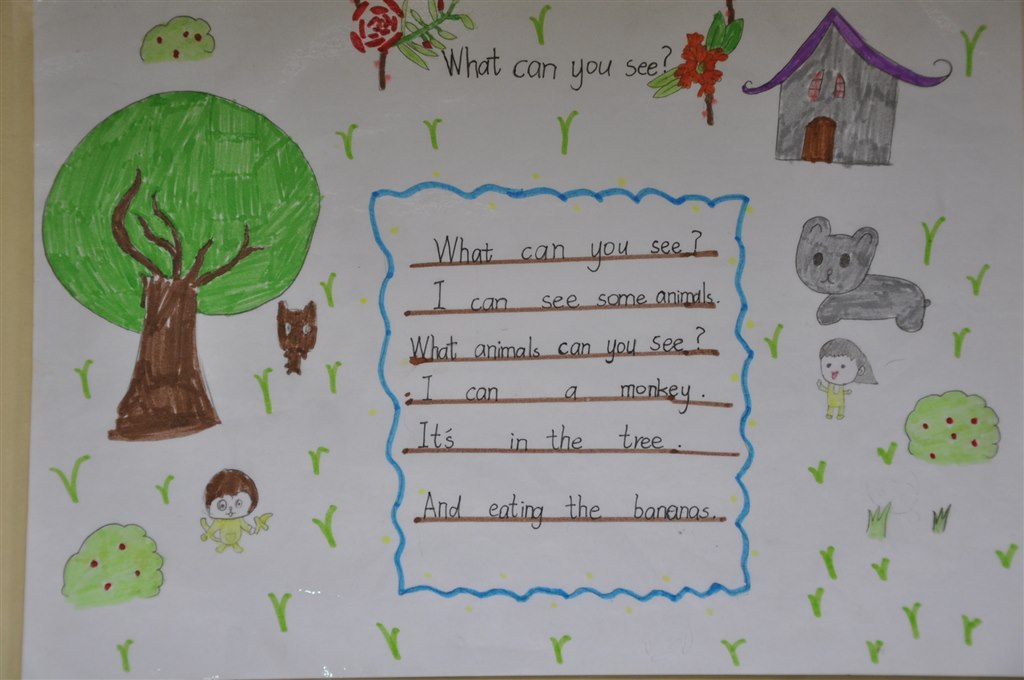 What can you see?
What can you see?
I can see some animals.
What animals can you see?
I can a monkey.
It's in the tree.
And eating the bananas.